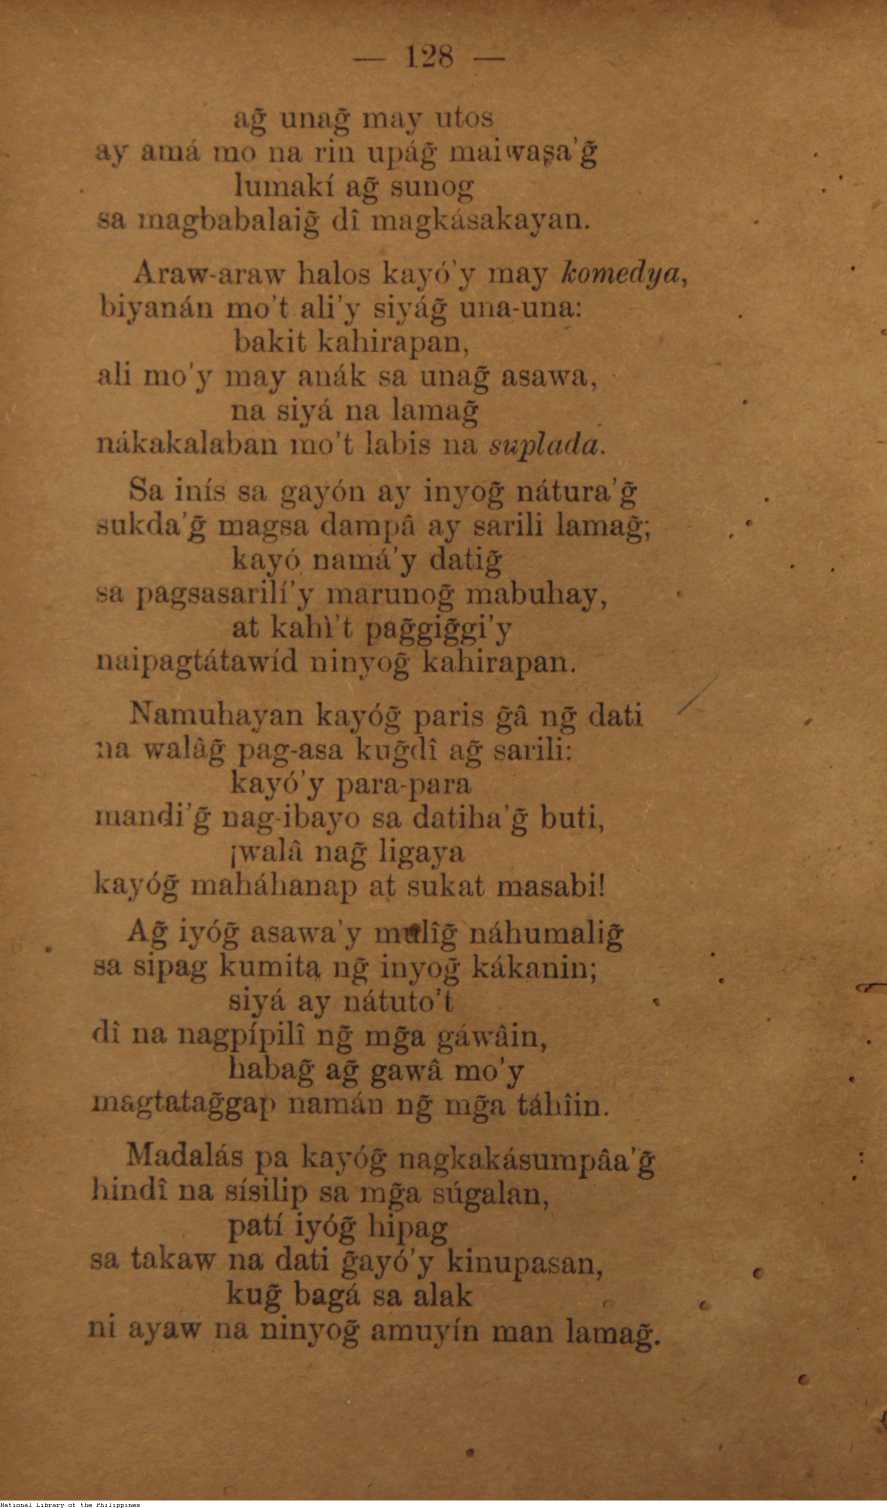 — 128 —
ag̃ unag̃ may utos
ay amá mo na rin upág̃ maiwasa'g̃
lumakí ag̃ sunog
sa magbabalaig̃ dî magkásakayan.
Araw-araw halos kayó'y may komedya,
biyanán mo't ali'y siyág̃ una-una:
bakit kahirapan,
ali mo'y may anák sa unag̃ asawa,
na siyá na lamag̃
nákakalaban mo't labis na suplada.
Sa inís sa gayón ay inyog̃ nátura'g̃
sukda'g̃ magsa dampâ ay sarili lamag̃;
kayó namá'y datig̃
sa pagsasarilí'y marunog̃ mabuhay,
at kahì't pag̃gig̃gi'y
naipagtátawíd ninyog̃ kahirapan.
Namuhayan kayóg̃ paris g̃â ng̃ dati
na walâg̃ pag-asa kug̃dî ag̃ sarili:
kayó'y para-para
mandi'g̃ nag-ibayo sa datiha'g̃ buti,
¡walâ nag̃ ligaya
kayóg̃ maháhanap at sukat masabi!
Ag̃ iyóg̃ asawa'y mulîg̃ náhumalig̃
sa sipag kumita ng̃ inyog̃ kákanin;
siyá ay nátuto't
dî na nagpípilî ng̃ mg̃a gáwâin,
habag̃ ag̃ gawâ mo'y
magtatag̃gap namán ng̃ mg̃a táhîin.
Madalás pa kayóg̃ nagkakásumpâa'g̃
hindî na sísilip sa mg̃a súgalan,
patí iyóg̃ hipag
sa takaw na dati g̃ayó'y kinupasan,
kug̃ bagá sa alak
ni ayaw na ninyog̃ amuyín man lamag̃.
National Library of the Philippines